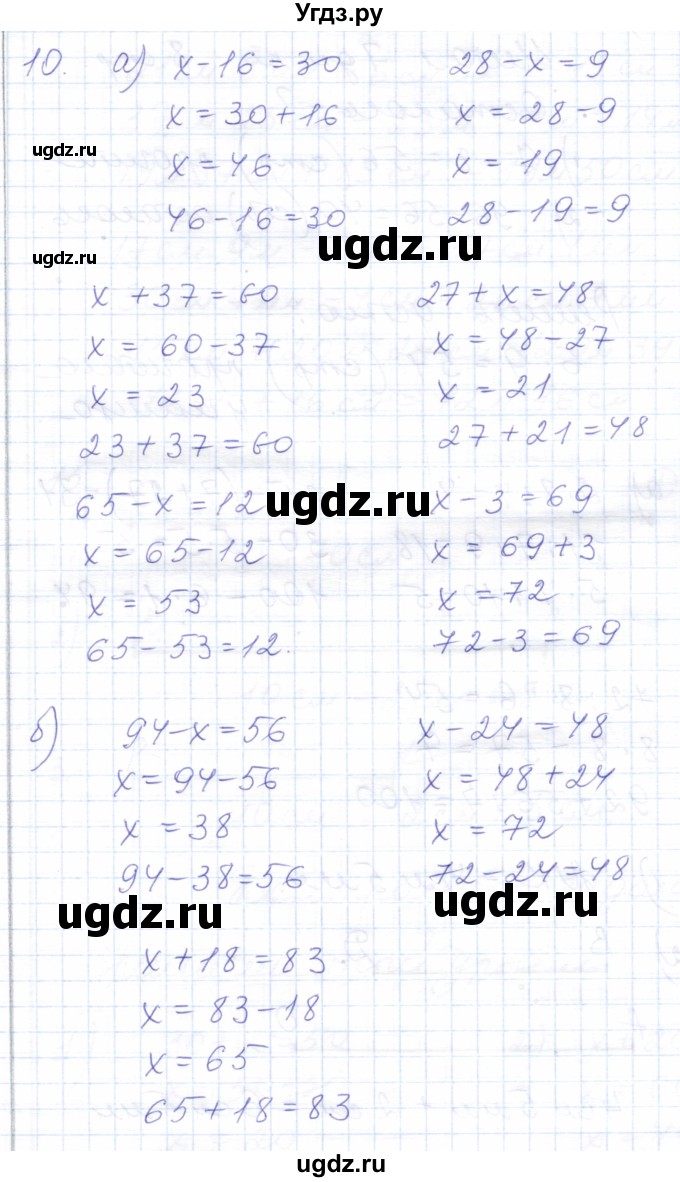 Угдз.ру
10. а) x-16=30 28-x=9
x=30+16 x=28-9
ugdz.ru
x=46 x=19
46-16=30 28-19=9
ugdz.ru
ugdz.ru
x+37=60 27+x=48
x=60-37 x=48-27
x=23 x=21
23+37=60 27+21=48
65-x=12 x-3=69
ugdz.ru
x=65-12 x=69+3
x=53 x=72
65-53=12. 72-3=69
б) 94-x=56 x-24=48
x=94-56 x=48+24
x=38 x=72
94-38=56 72-24=48
ugdz.ru ugdz.ru
x+18=83
x=83-18
x=65
65+18=83
ugdz.ru